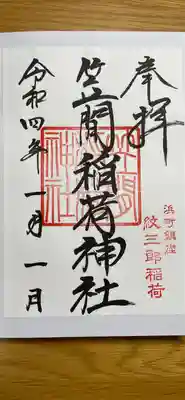 奉拝
浜町鎮座
紋三郎稲荷
笠間稲荷神社
笠間神社
令和四年一月一日